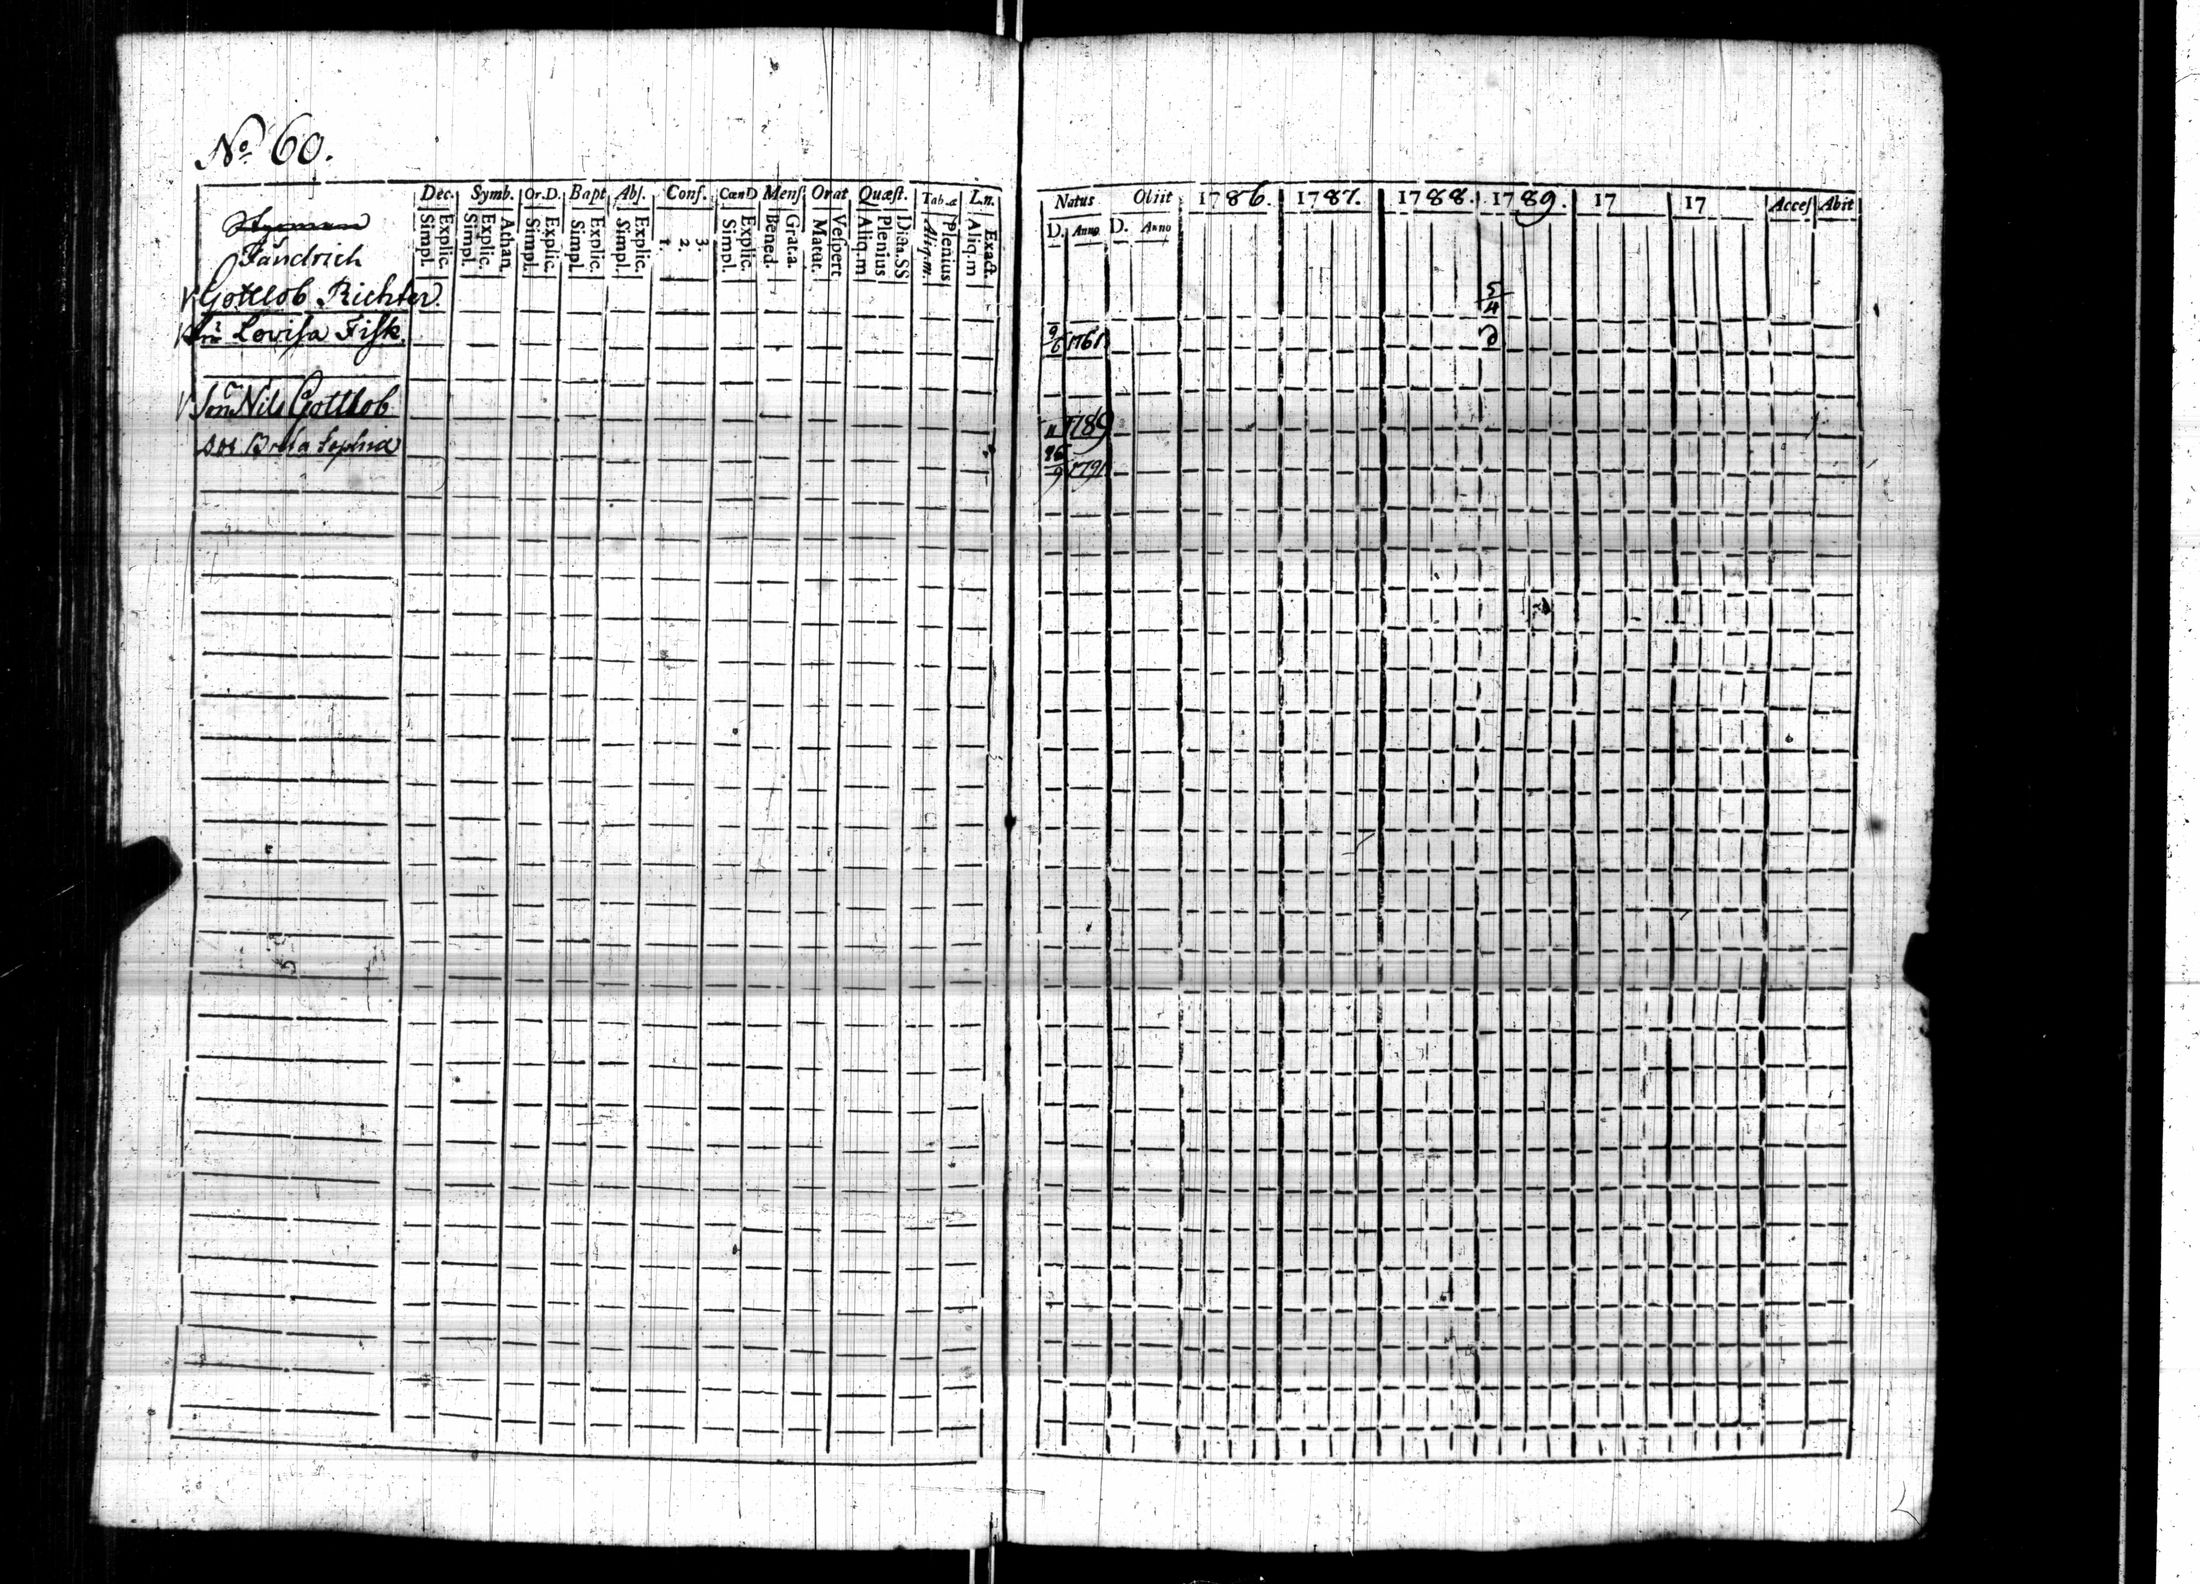 No 60.
Dec. Symb. Or.D. Bapt Abs. Conf. CœnD Mens Orat Quæst. Tab.æ L.n.
Simpl. Explic. Simpl. Explic. Athan. Simpl. Explic. Simpl. Explic. Simpl. Explic. 1. 2. 3. Simpl. Explic. Bened. Grat.a. Matut. Vespert Aliq.m Plenius Dicta.SS Aliq.m. Plenius Aliq.m Exact.
Fändrich
Gottlob Richter
Lovisa Fisk.
son Nils Gottlob
Dot Brita Sophia
Natus Obiit 1786. 1787. 1788. 1789. 17 17 Acces Abit
D. Anno D. Anno
5/4
9/6 1761
11 1789
26/9 1791